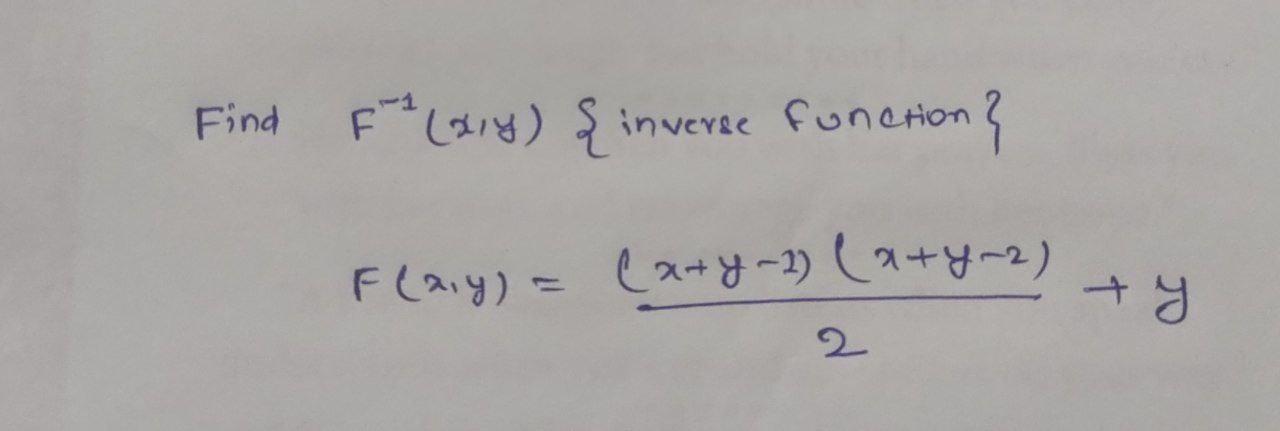 Find F⁻¹(x,y) { inverse function }
F(x,y) = (x+y-1) (x+y-2) / 2 + y